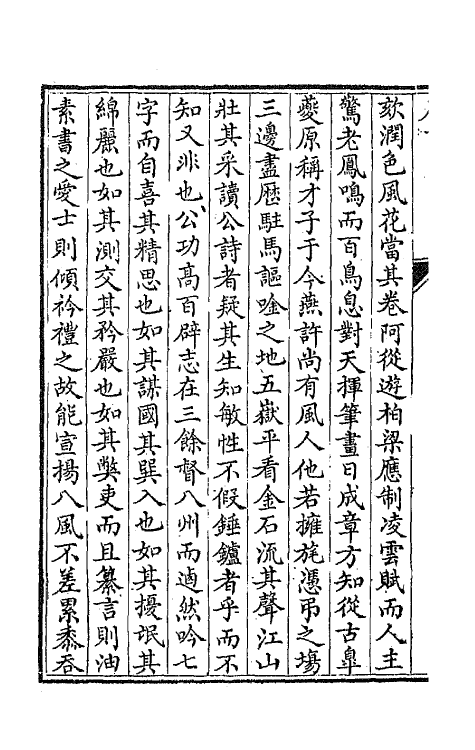 欬潤色風花當其卷阿從遊柏梁應制凌雲賦而人主
驚老鳳鳴而百鳥息對天揮筆晝日成章方知從古臯
夔原稱才子于今燕許尚有風人他若擁旄憑弔之塲
三邊盡歷駐馬謳唫之地五嶽平看金石流其聲江山
壯其采讀公詩者疑其生知敏性不假錘鑪者乎而不
知又非也公功高百辟志在三餘督八州而逌然吟七
字而自喜其精思也如其謀國其巽入也如其擾氓其
綿麗也如其測交其矜嚴也如其獘吏而且纂言則油
素書之愛士則傾衿禮之故能宣揚八風不差累黍吞